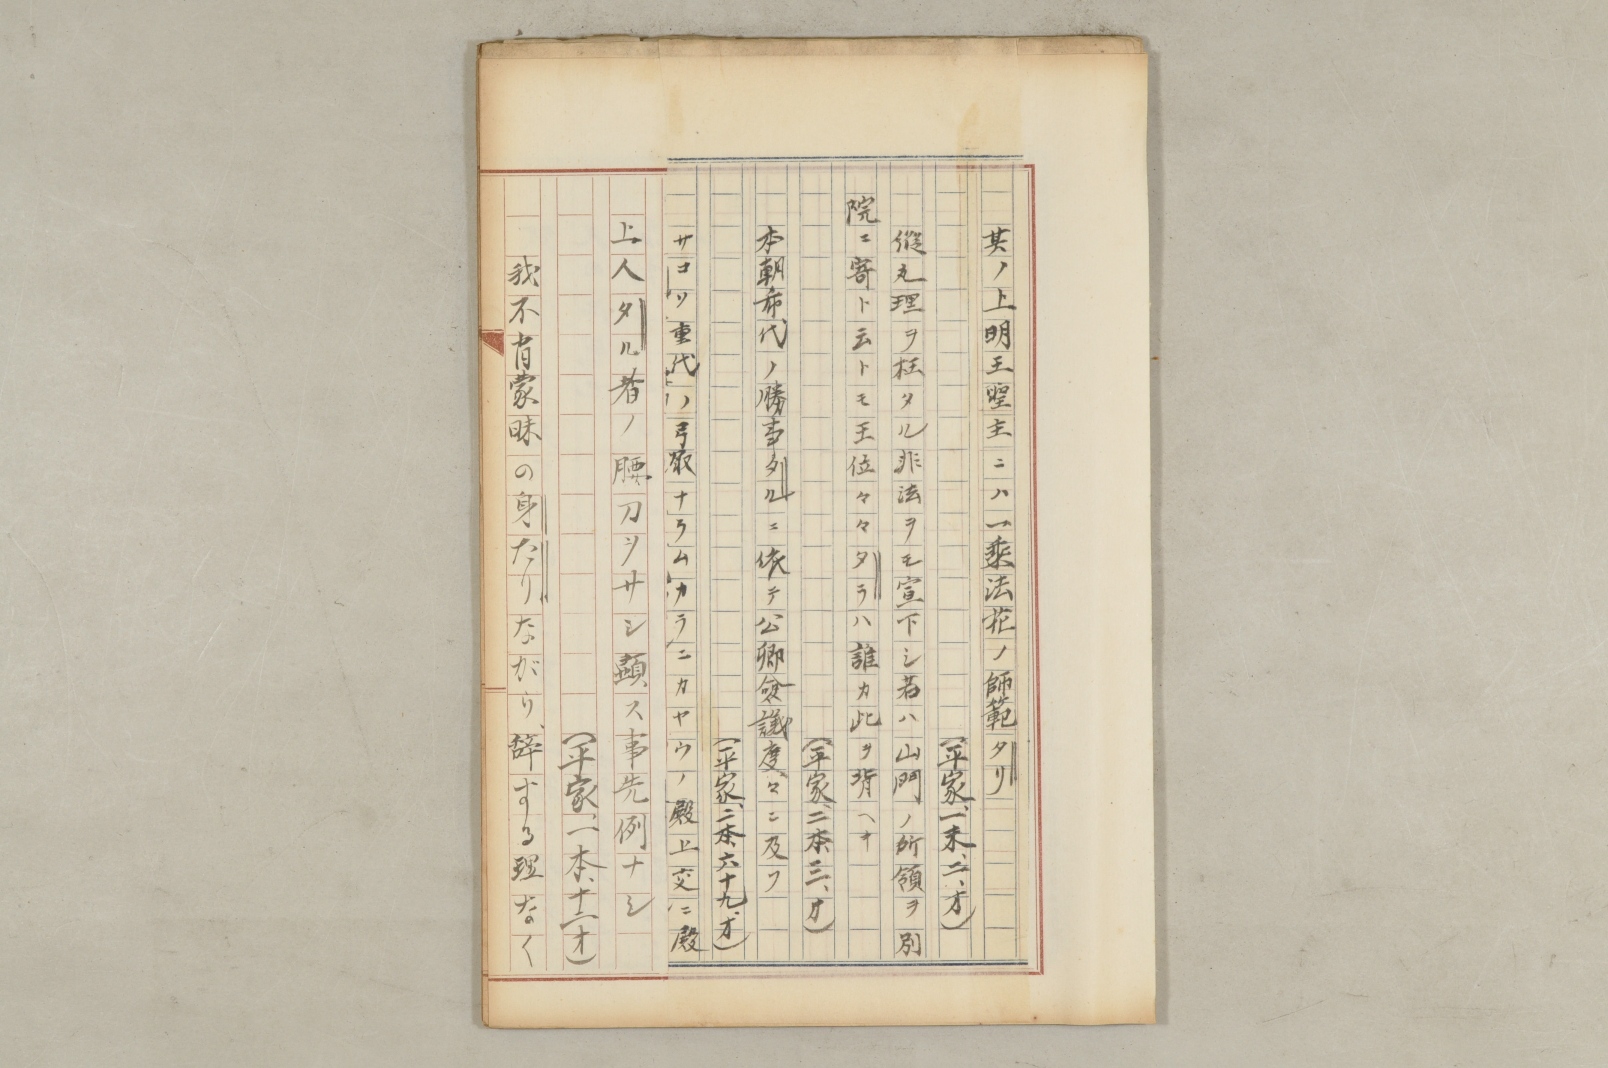 其ノ上明王聖主ニハ一乘法花ノ師範タリ
(平家、一末、二、オ)
縦丸理ヲ枉タル非法ヲモ宣下シ若ハ山門ノ所領ヲ別
院ニ寄ト云トモ王位々々タラハ誰カ此ヲ背ヘキ
(平家、二本、三、オ)
本朝希代ノ勝事タルニ依テ公卿僉議度々ニ及フ
(平家、二本、六十九、オ)
サコソ重代ノ弓取ナラムカラニカヤウノ殿上交ニ殿
上人タル者ノ腰刀ヲサシ顕ス事先例ナシ
(平家、一本、十二オ)
我不肖蒙昧の身たりながり、辞する理なく